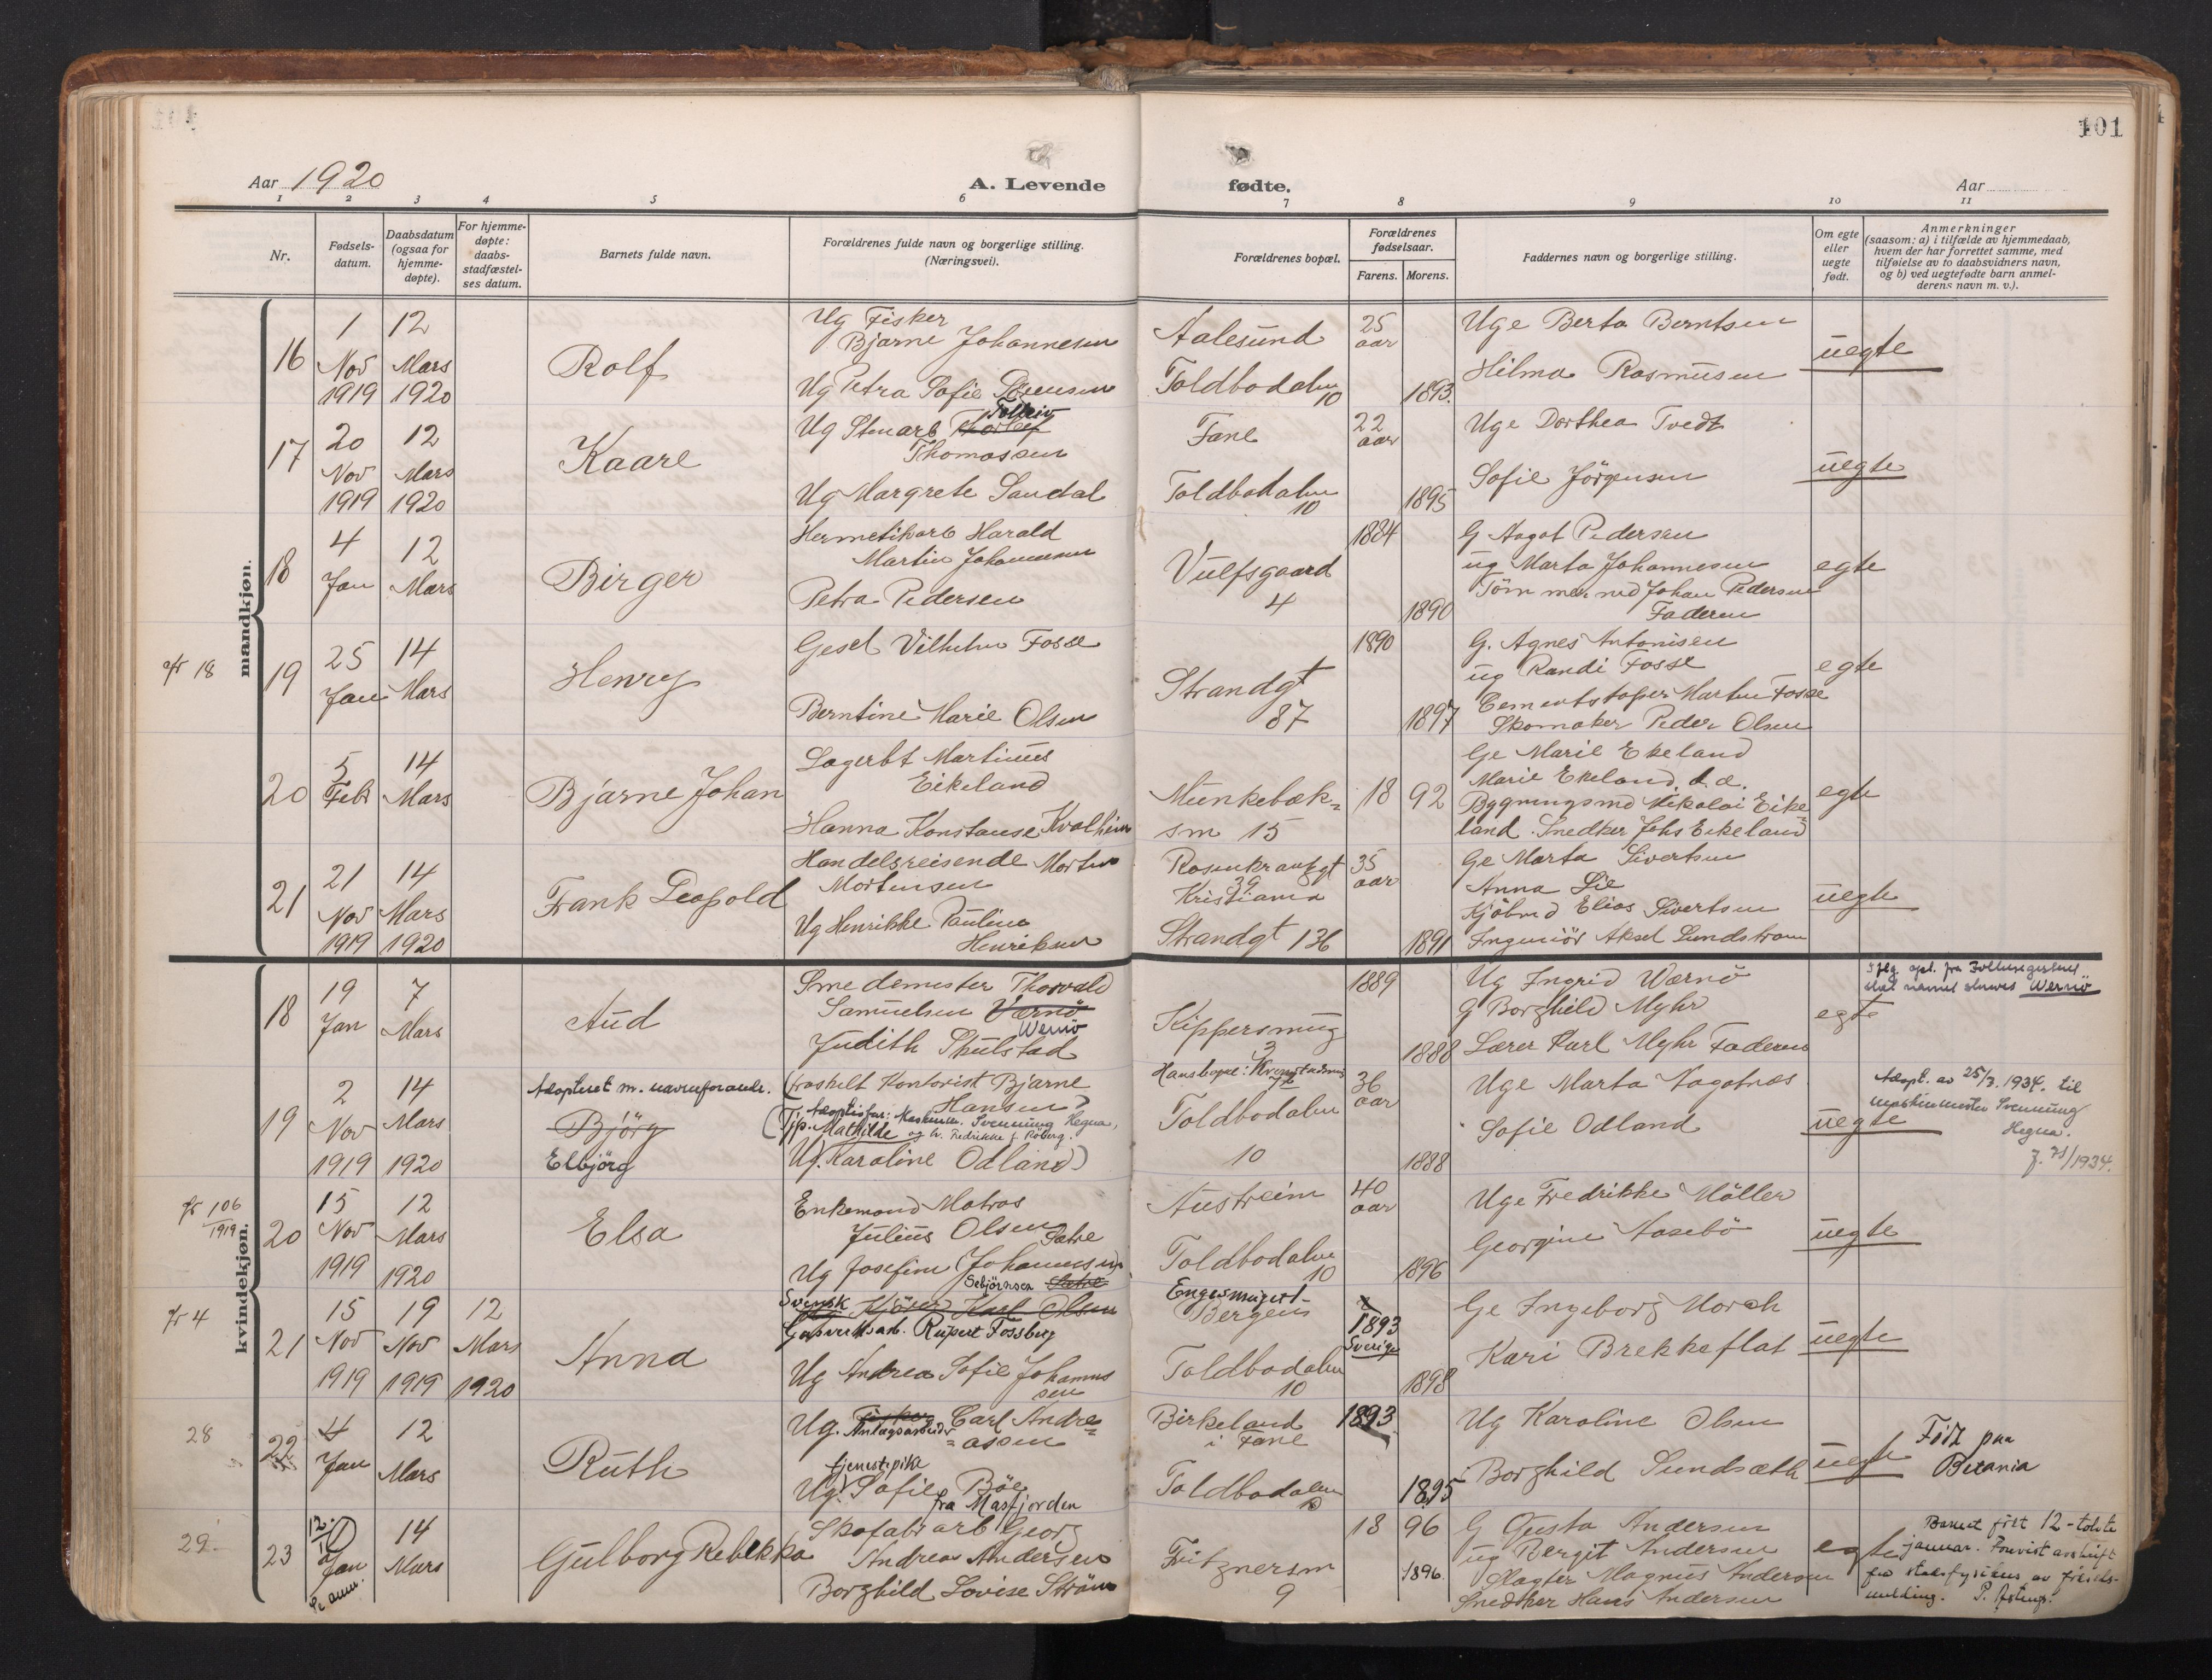 101
Aar 1920
A. Levende
fødte.
Aar
1 2 3 4 5 6 7 8 9 10 11
Nr.
Fødsels-
datum.
Daabsdatum
(ogsaa for
hjemme-
døpte).
For hjemme-
døpte:
daabs-
stadfæstel-
ses datum.
Barnets fulde navn.
Forældrenes fulde navn og borgerlige stilling.
(Næringsvei).
Forældrenes bopæl.
Forældrenes
fødselsaar.
Farens. Morens.
Faddernes navn og borgerlige stilling.
Om egte
eller
uegte
født.
Anmerkninger
(saasom: a) i tilfælde av hjemmedaab,
hvem der har forrettet samme, med
tilføielse av to daabsvidners navn,
og b) ved uegtefødte barn anmel-
derens navn m. v.).
mandkjøn.
16
1
Nov
1919
12
Mars
1920
Rolf
Ug Fisker
Bjarne Johannesen
Ug Petra Sofie
Aalesund
Toldbodalm
10
25
aar
1893.
Uge Berta Berntsen
Hilma Rasmusen
uegte
17
20
Nov
1919
12
Mars
1920
Kaare
Ug Stuarb
Thomassen
Ug Margrete Sandal
Fane
Toldbodalm
10
22
aar
1895
Uge Dorthea Tvedt
Sofie Jörgensen
uegte
18
4
Jan
12
Mars
Birger
Hermetikarb Harald
Martin Johannesen
Petra Pedersen
Vulfsgaard
4
1884
1890
G Aagot Pedersen
ug Marta Johannesen
Johan Pedersen
Faderen
egte
18
19
25
Jan
14
Mars
Henry
Gesel Vilhelm Fosse
Berntine Marie Olsen
Strandgt
87
1890
1897
G. Agnes Antonisen
ug Randi Fosse
Cementstøper Martin Fosse
Skomaker Peder Olsen
egte
20
5
Febr
14
Mars
Bjarne Johan
Lagerbt Martinus
Eikeland
Hanna Konstanse Kvalheim
Munkebæk-
sm 15
18 92
Ge Marie Ekeland
Marie Ekeland. d.æ.
Bygningsmd Nikolai Eike
land. Snedker Johs Eikeland
egte
21
21
Nov
1919
14
Mars
1920
Frank Leopold
Handelsreisende Morten
Mortensen
Ug Henrikke Pauline
Henriksen
Rosenkrantzgt
39
Kristiania
Strandgt 136
35
aar
1891
Ge Marta Sivertsen
Anna Lie
Kjöbmd Elias Sivertsen
Ingeniör Aksel Lundstrom
uegte
kvindekjøn.
18
19
Jan
7
Mars
Aud
Smedemester Thorvald
Samuelsen Værnö
Wernö
Judith Skulstad
Kippersmug
3
1889
1888
Ug Ingrid Wærnö
G Borghild Myhr
Lærer Karl Myhr Faderen
egte
Iflg. opl. fra Folkeregisteret
skal navnet skrives Wernö
19
2
Nov
1919
14
Mars
1920
Adopteret m. navneforandr.
Björg
Elbjörg
(fraskilt Kontorist Bjarne
Hansen)
Adoptivfar: Maskinm. Svenning Hegna,
og h. Fredrikke f. Röberg.
(Tjp. Mathilde
Ug. Karoline Odland)
Toldbodalm
10
36
aar
1888
Uge Marta Aagotnæs
Sofie Odland
uegte
Adopt. av 25/3. 1934. til
maskinmester Svenning
Hegna.
J. 71/1934.
106
1919
20
15
Nov
1919
12
Mars
1920
Elsa
Enkemand Matros
Julius Olsen
Sætre
Ug Josefine (Johannesen)
Sebjörnsen Sætre
Austreim
Toldbodalm
10
40
aar
1896
Uge Fredrikke Möller
Georgine Aasebö
uegte
4
21
15
Nov
1919
19
Nov
1919
12
Mars
1920
Anna
Svensk Kjörer Karl Olsen
Gasverksarb. Rupert Fossberg
Ug Andrea Sofie Johannes
sen
Engesmuget
Bergen
Toldbodalm
10
1893
Sverige
1898
Ge Ingeborg Morch
Kari Brekkeflat
uegte
28
22
4
Jan
12
Mars
Ruth
Ug. Fisker Carl Andre=
Anlægsarbeider
=assen
tjenestepike
Ug. Sofie Böe
fra Masfjorden
Birkeland
i Fane
Toldbodalm
10
1893
1895
Ug Karoline Olsen
Borghild Sundsæth
uegte
Født paa
Betania
29
23
12.
Jan
14
Mars
Gulborg Rebekka
Skofabr arb Georg
Andreas Andersen
Borghild Lovise Ström
Fritznersm
9
18 96
1896.
G Gusta Andersen
ug Bergit Andersen
Slagter Magnus Andersen
Snedker Hans Andersen
egte
Barnet født 12-tolvte
januar. Forevist avskrift
fra stadsfysikus av fødsels-
melding.